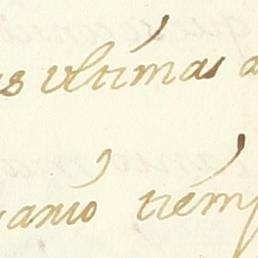 as ultimas a
vanio tiemp